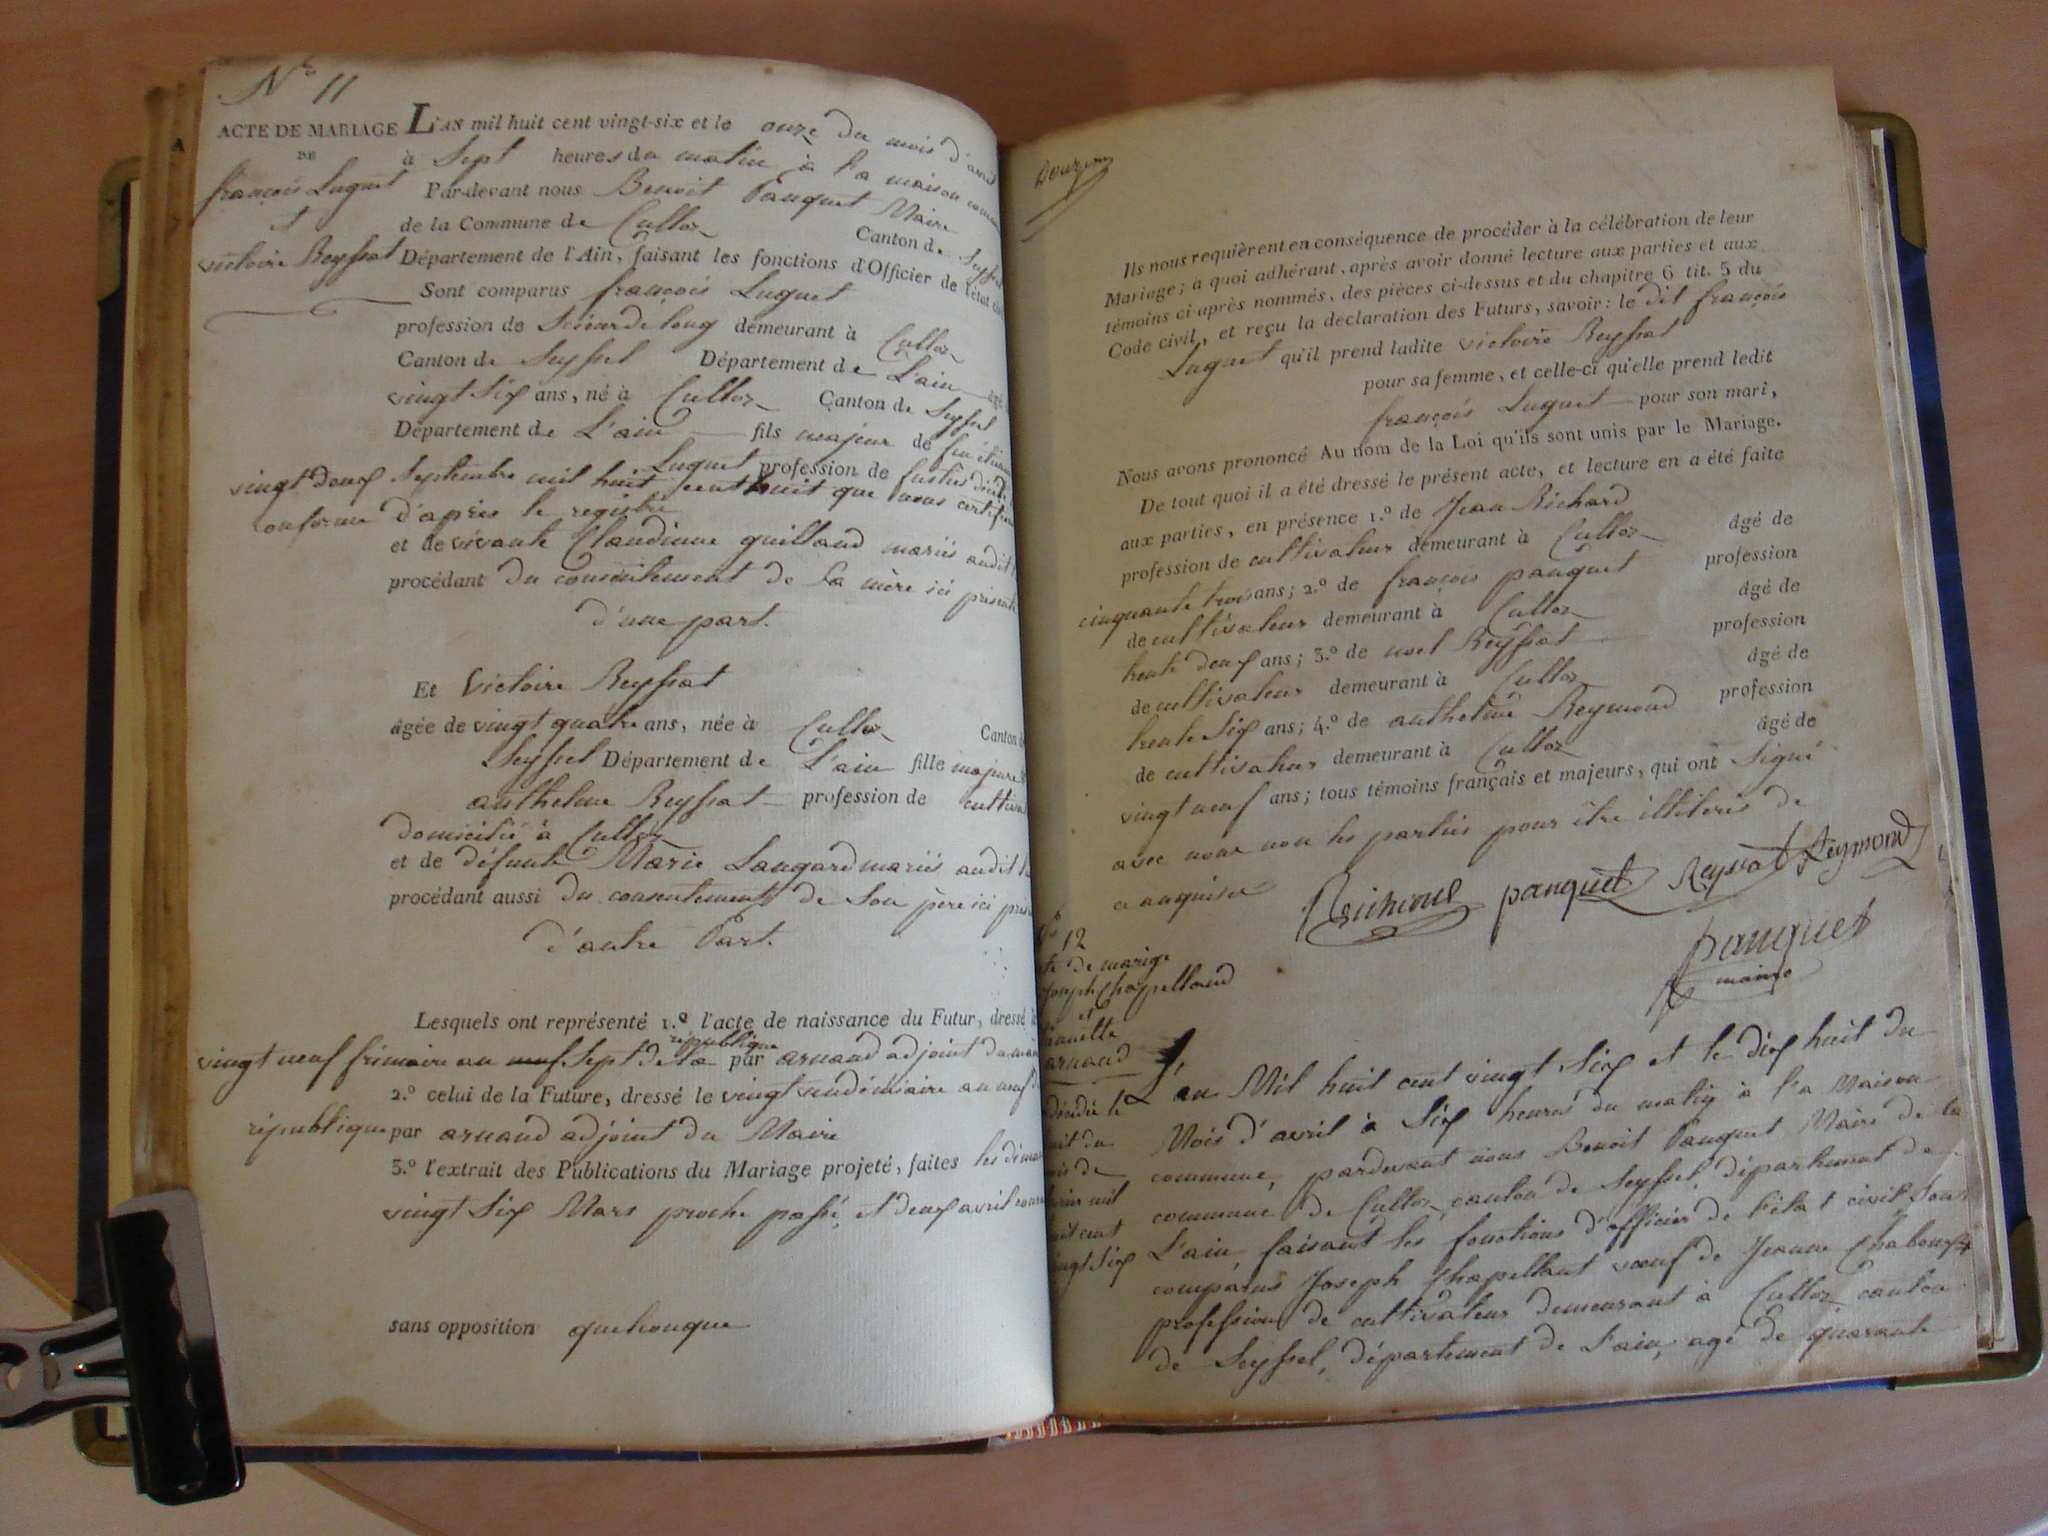 No 11
ACTE DE MARIAGE
DE
françois Luquet
et
victoire Reyssat
L'AN mil huit cent vingt-six et le onze du mois d'avril
à Sept heures du matin à la maison
Par-devant nous Benoit Pauquet Maire
de la Commune de Culloz Canton de Seyssel
Département de l'Ain, faisant les fonctions d'Officier de l'état
Sont comparus françois Luquet
profession de Scieur de long demeurant à Culloz
Canton de Seyssel Département de L'ain âgé
vingt Six ans, né à Culloz Canton de Seyssel
Département de L'ain fils majeur de feu
Luquet profession de
vingt deux Septembre mil huit cent huit que nous certifions
conforme d'après le registre
et de vivante Claudinne guilland mariés audit
procédant du consentement de Sa mère ici présente
d'une part.
Et Victoire Reyssat
âgée de vingt quatre ans, née à Culloz Canton
Seyssel Département de L'ain fille majeure
anthelme Reyssat profession de
domicilié à Culloz
et de défunte Marie Langard mariés audit
procédant aussi du consentement de Son père ici
d'autre Part.
Lesquels ont représenté 1.º l'acte de naissance du Futur, dressé
république
vingt neuf frimaire an neuf Sept de la par arnaud adjoint du
2.º celui de la Future, dressé le vingt vendémiaire an neuf
république par arnaud adjoint du Maire
3.º l'extrait des Publications du Mariage projeté, faites les
vingt Six Mars proche passé, et deux avril
sans opposition quelconque
Douze
Ils nous requièrent en conséquence de procéder à la célébration de leur
Mariage; à quoi adhérant, après avoir donné lecture aux parties et aux
témoins ci après nommés, des pièces ci-dessus et du chapitre 6 tit. 5 du
Code civil, et reçu la déclaration des Futurs, savoir: le dit françois
Luquet qu'il prend ladite victoire Reyssat
pour sa femme, et celle-ci qu'elle prend ledit
françois Luquet pour son mari,
Nous avons prononcé Au nom de la Loi qu'ils sont unis par le Mariage.
De tout quoi il a été dressé le présent acte, et lecture en a été faite
aux parties, en présence 1.º de Jean Richard
profession de cultivateur demeurant à Culloz âgé de
cinquante trois ans; 2.º de françois pauquet profession
de cultivateur demeurant à Culloz âgé de
trente deux ans; 3.º de noel Reyssat profession
de cultivateur demeurant à Culloz âgé de
trente Six ans; 4.º de anthelme Reymond profession
de cultivateur demeurant à Culloz âgé de
vingt neuf ans; tous témoins français et majeurs, qui ont Signé
avec nous non les parties pour être illiteris de
ce enquises
pauquet Reyssat Reymond
pauquet
maire
12
de mariage
Joseph Chapelland
et
arnaud
L'an Mil huit cent vingt Six et le dix huit du
Mois d'avril à Six heures du matin à la Maison
commune, pardevant nous Benoit Pauquet Maire de la
commune de Culloz, canton de Seyssel, département de
L'ain, faisant les fonctions d'officier de l'état civil Sont
comparus Joseph Chapelland voeuf de Jeanne Chaboux
profession de cultivateur demeurant à Culloz canton
de Seyssel, département de L'ain, agé de quarante